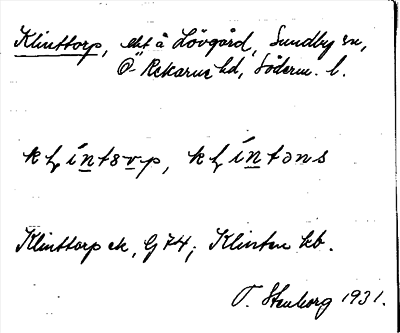 Klinttorp, ekt å Lövgård, Sundby sn,
Ö-Rekarne hd, Söderm. l.
klíntɔrp, klíntəns
Klinttorp ek, G 74; Klinten kb.
T. Stenborg 1931.